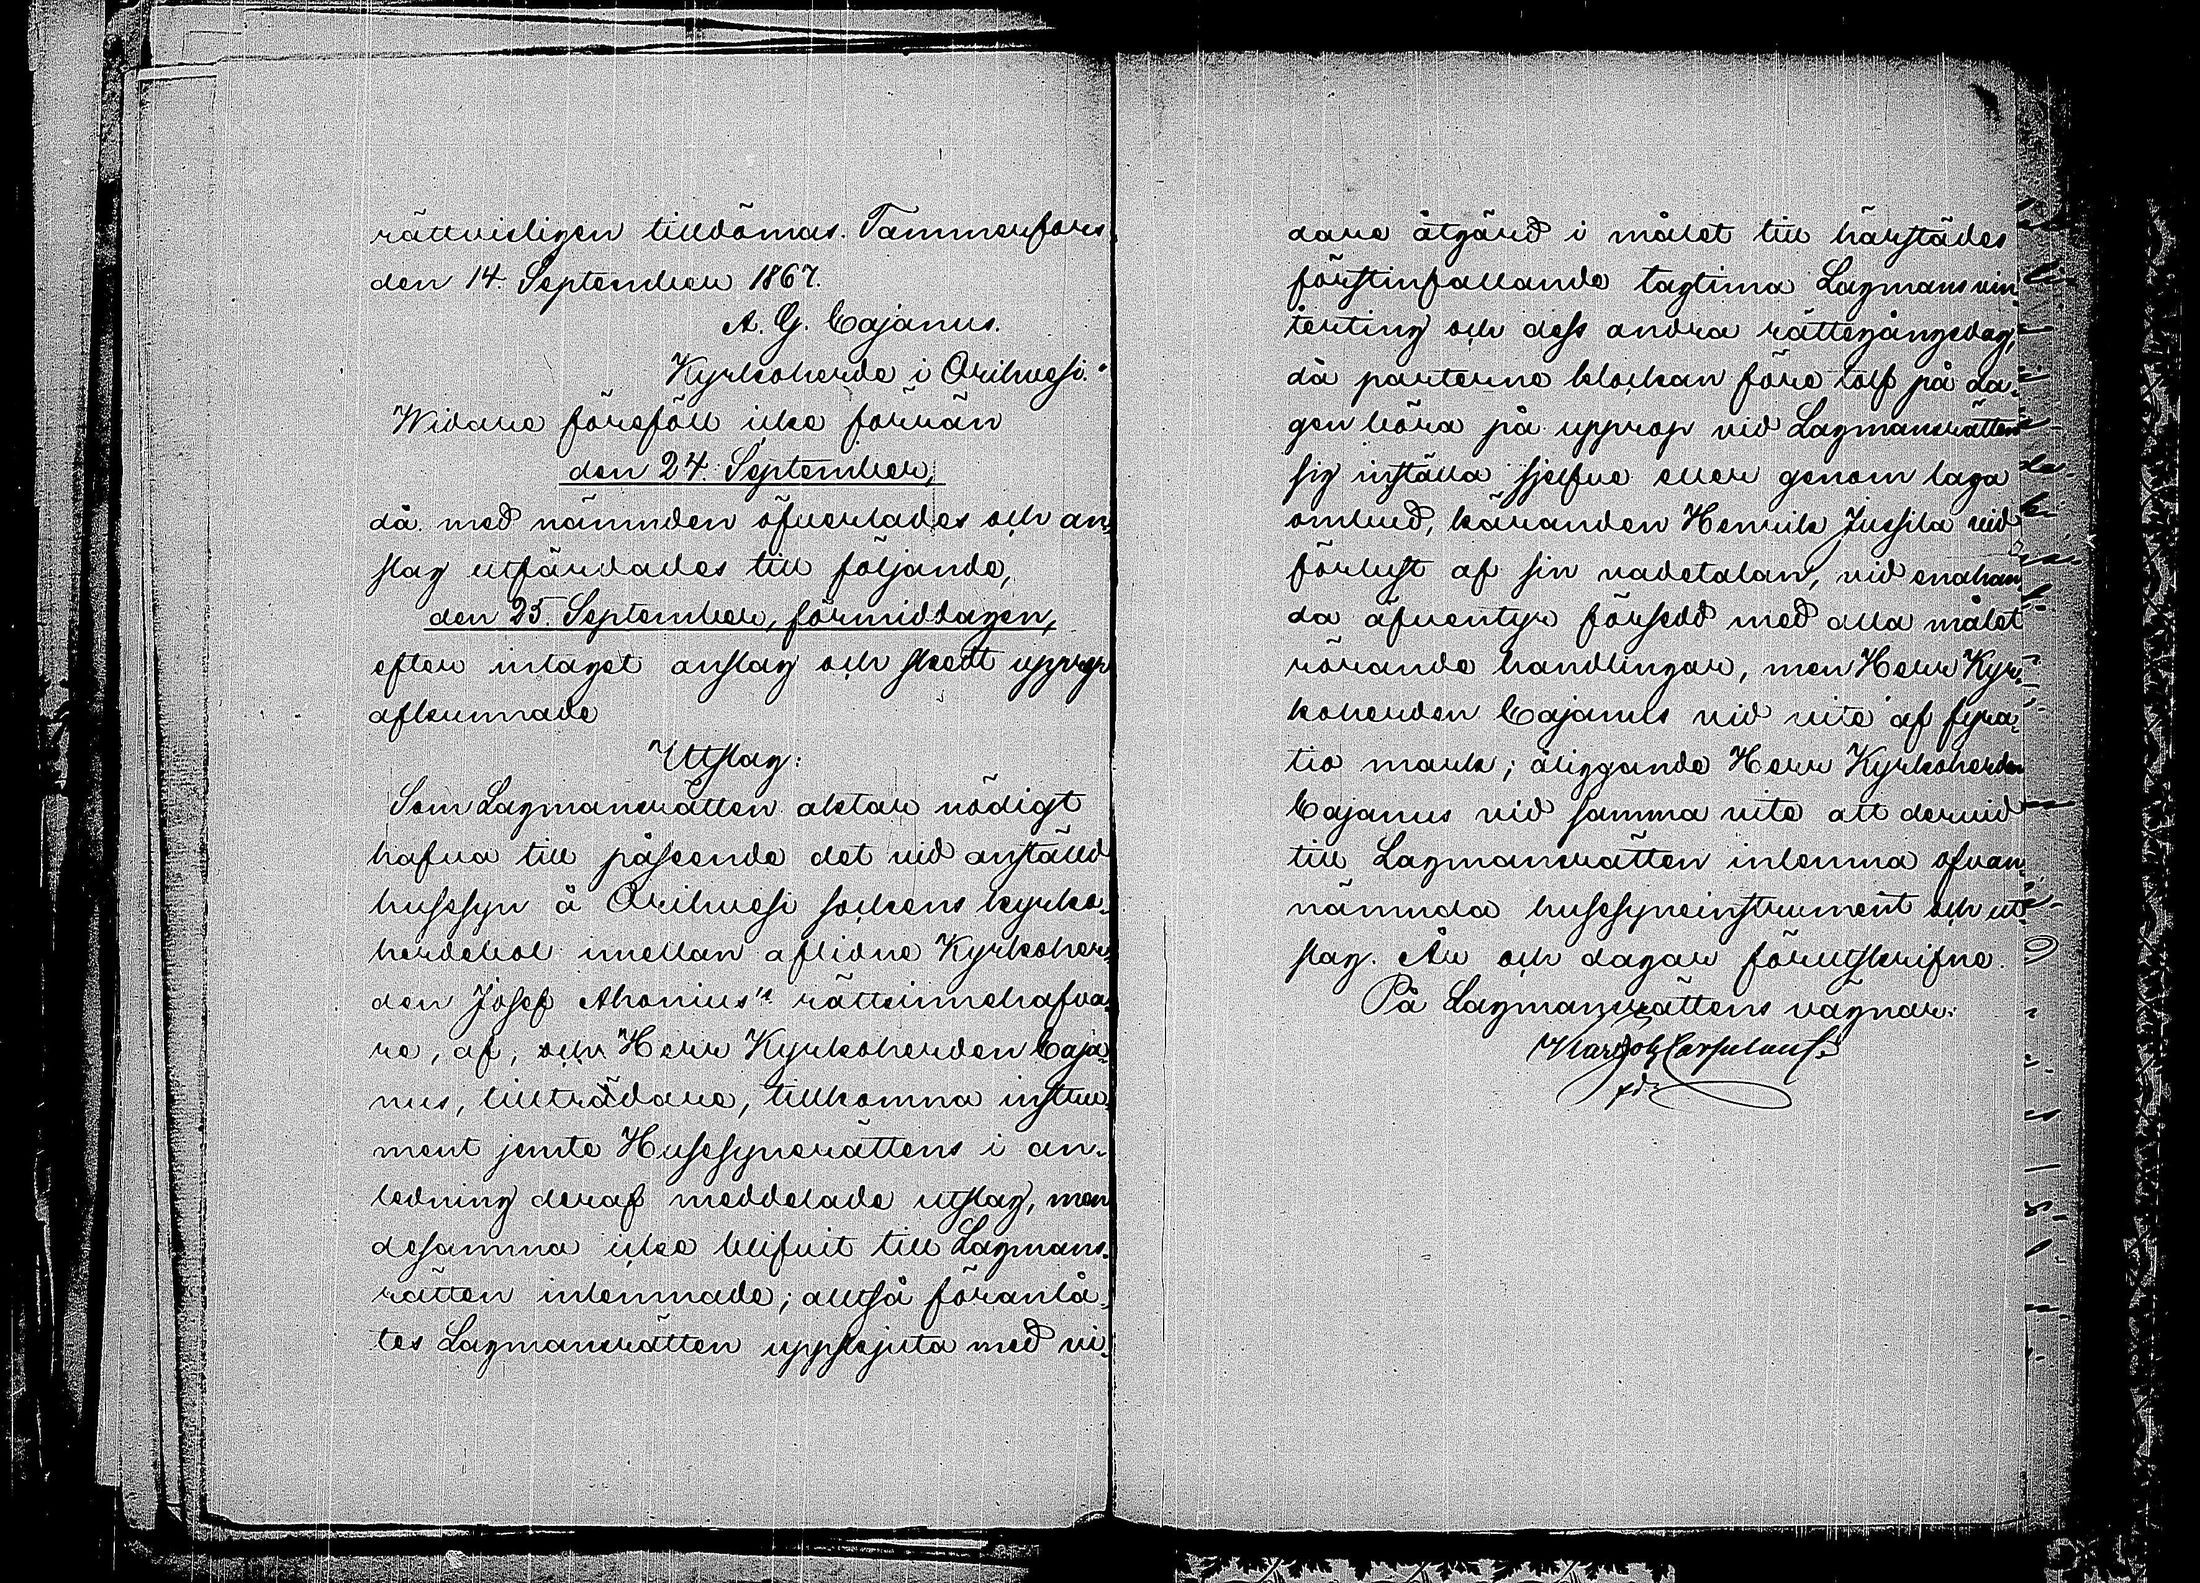 rättvisligen tilldömas. Tammerfors
den 14. September 1867.
A. G. Cajanus.
Kyrkoherde i Orihvesi."
Widare föreföll icke förrän
den 24. September,
då med nämnden öfverlades och an-
slag utfärdades till följande,
den 25. September, förmiddagen,
efter intaget anslag och skedt upprop
afkunnade
Utslag:
Som Lagmansrätten aktar nödigt
hafva till påseende det vid anställd
husesyn å Orihvesi sockens kyrko-
herdebol imellan aflidne Kyrkoher-
den Josef Ahonius's rättsinnehafva-
re, af, och Herr Kyrkoherden Caja-
nus, tillträdare, tillkomna instru-
ment jemte Husesynsrättens i an-
ledning deraf meddelade utslag, men
desamma icke blifvit till Lagmans-
rätten inlemnade; alltså föranlå-
tes Lagmansrätten uppskjuta med vi-
dare åtgärd i målet till härstädes
förstinfallande lagtima Lagmansvin-
terting och dess andra rättegångsdag,
då parterne klockan före tolf på da-
gen böra på upprop vid Lagmansrätten
sig inställa sjelfve eller genom laga
ombud, käranden Henrik Jussila vid
förlust af sin vadetalan, vid enahan-
da äfventyr försedd med alla målet
rörande handlingar, men Herr Kyr-
koherden Cajanus vid vite af fyra-
tio mark; åliggande Herr Kyrkoherden
Cajanus vid samma vite att dervid
till Lagmansrätten inlemna ofvan-
nämnda husesynsinstrument och ut-
slag. År och dagar förutskrifne.
På Lagmansrättens vägnar: